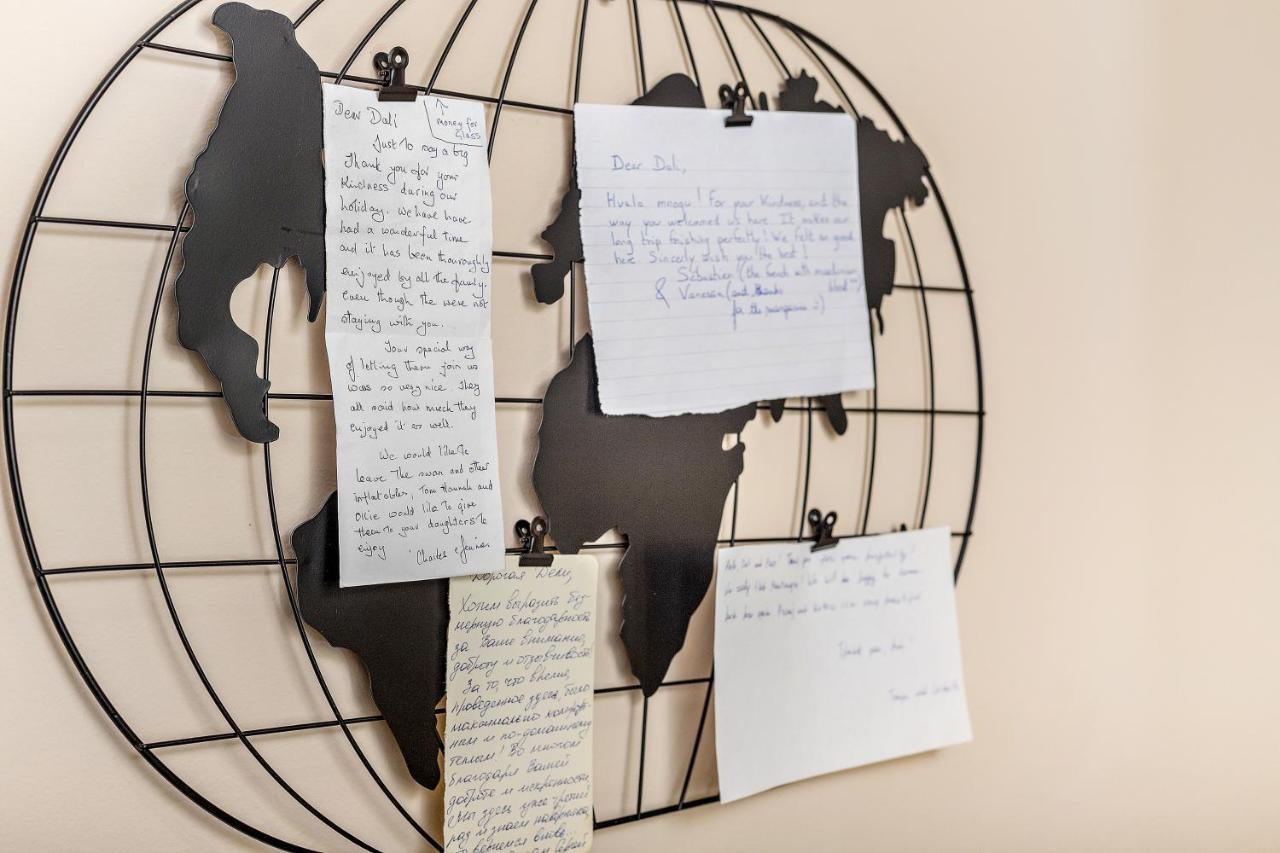 Dear Dali
↑
money for
Glass
Just to say a big
Thank you for your
Kindness during our
holiday. We have have
had a wonderful time
and it has been thouroughly
enjoyed by all the family.
even though the were not
staying with you.
Your special way
of letting them join us
was so very nice. They
all said how much they
enjoyed it as well.
We would like to
leave the swan and other
inflatables, Tom Hannah and
Ollie would like to give
them to your daughters to
enjoy
Charles &
Dear Dali,
Hvala mnogu! For your kindness, and the
way you welcomed us here. It makes our
long trip finishing perfectly! We felt so good
here. Sincerly wish you the best!
Sébastien (the french with
blood
& Vanessa (and thanks
for the :)
Дорогая Дели,
Хотим выразить без-
мерную благодарность
за Ваше внимание,
доброту и отзывчивость
За то, что время,
проведенное здесь, было
максимально комфорт-
ным и по-домашнему
теплым! Во многом
благодаря Вашей
доброте и искренности.
Мы здесь уже третий
раз и знаем наверняка,
вернемся
Thank you for
We will be happy to
back here again
Thank you,
and